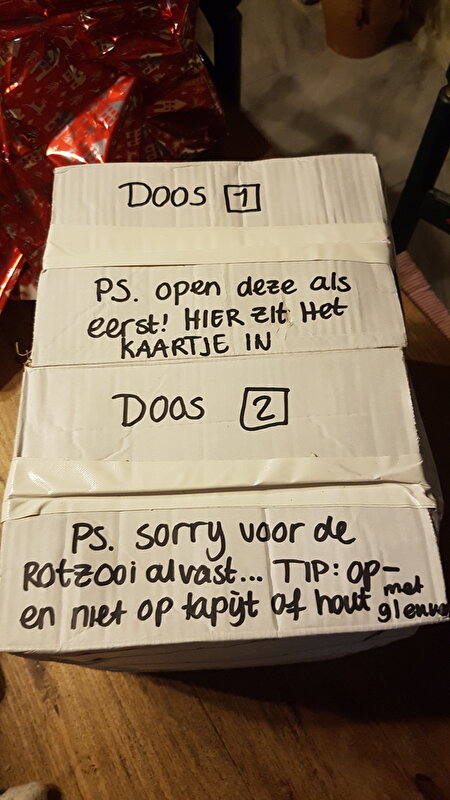 DOOS 1
PS. open deze als
eerst! HIER zit Het
KAARTJE IN
DOOS 2
PS. sorry voor de
ROTZOOI alvast... TIP: op-
en niet op tapijt of hout met